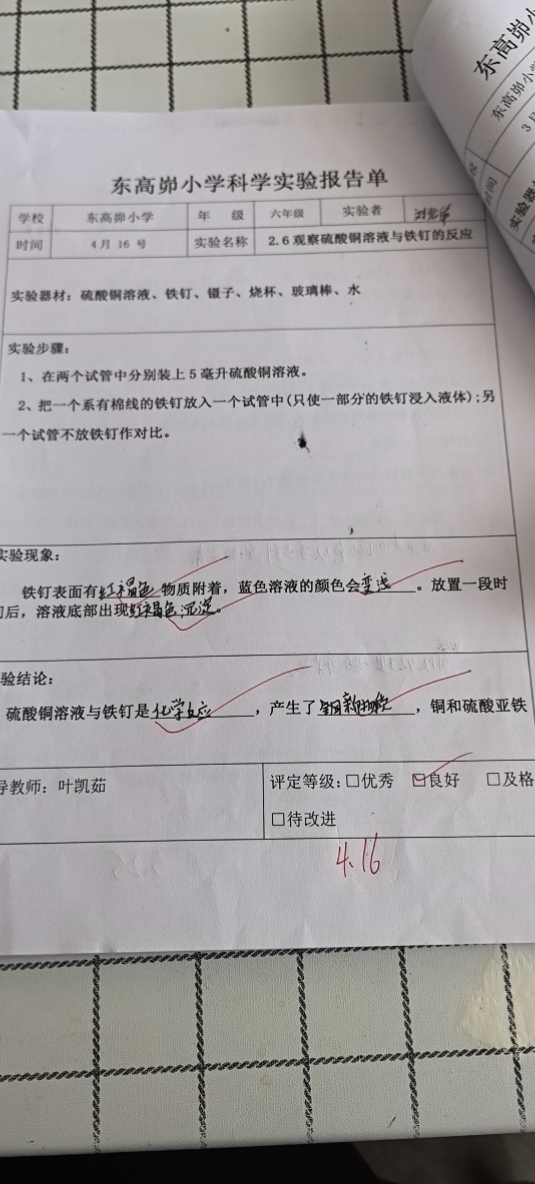 东高峁小学科学实验报告单
学校 东高峁小学 年 级 六年级 实验者
时间 4月16号 实验名称 2.6观察硫酸铜溶液与铁钉的反应
实验器材：硫酸铜溶液、铁钉、镊子、烧杯、玻璃棒、水
实验步骤：
1、在两个试管中分别装上5毫升硫酸铜溶液。
2、把一个系有棉线的铁钉放入一个试管中(只使一部分的铁钉浸入液体)；另
一个试管不放铁钉作对比。
实验现象：
铁钉表面有红褐色物质附着，蓝色溶液的颜色会变浅。放置一段时
后，溶液底部出现红褐色沉淀。
验结论：
硫酸铜溶液与铁钉是化学反应，产生了新物质，铜和硫酸亚铁
导教师：叶凯茹
评定等级：□优秀 ☑良好 □及格
□待改进
4.16
东高峁小
东高峁小学
3月
实验器